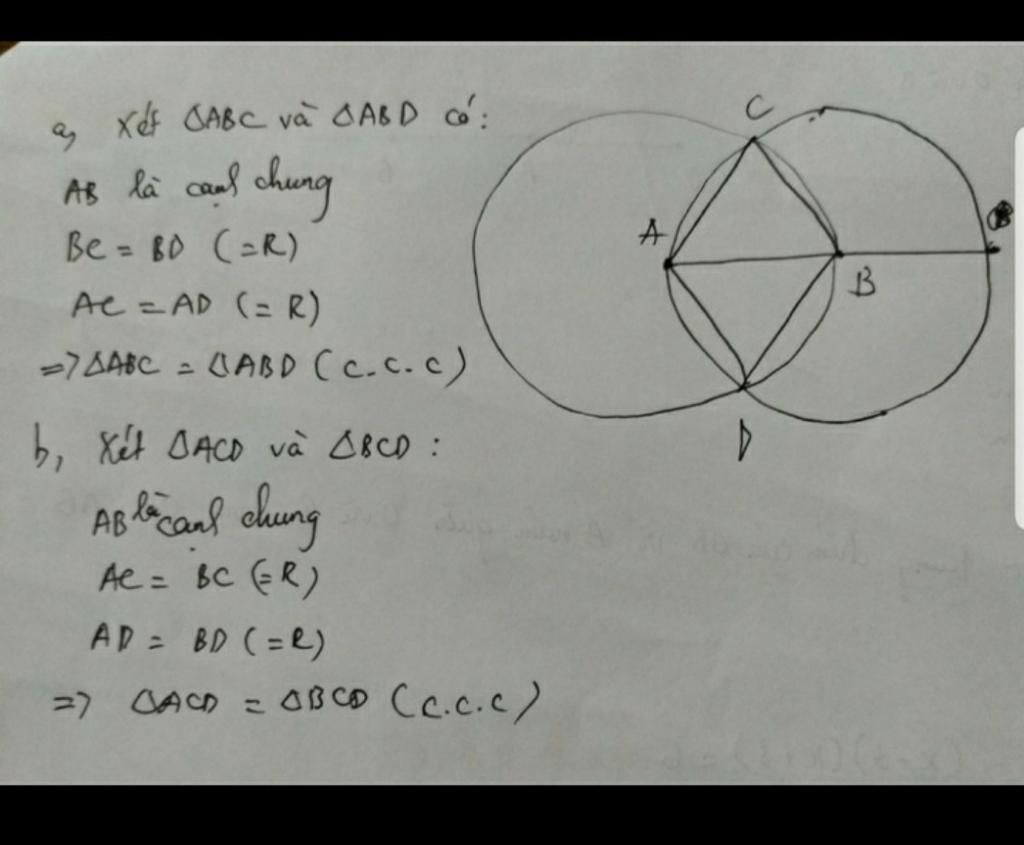 a, Xét ΔABC và ΔABD có:
AB là cạnh chung
BC = BD (=R)
AC = AD (= R)
=> ΔABC = ΔABD (c.c.c)
b, Xét ΔACD và ΔBCD :
AB là cạnh chung
AC = BC (=R)
AD = BD (=R)
=> ΔACD = ΔBCD (c.c.c)
C
A
B
D